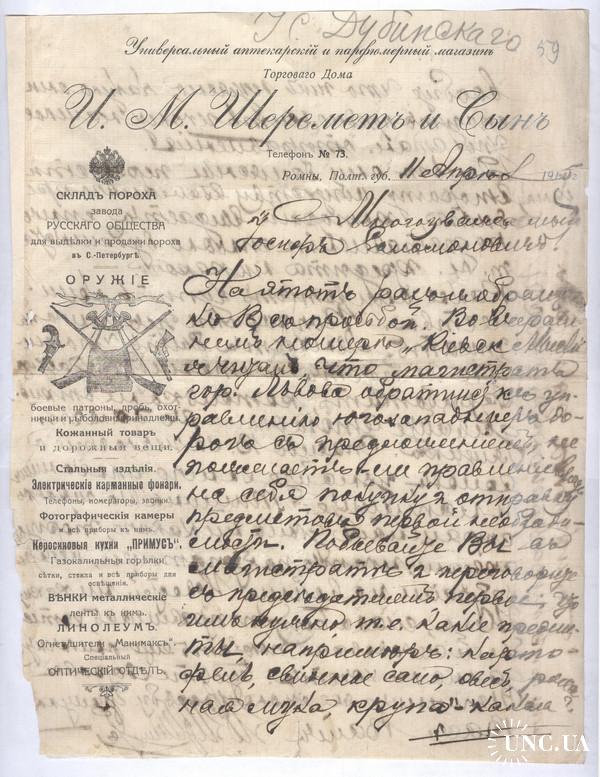 С. Дубинскаго
59
Универсальный аптекарскій и парфюмерный магазинъ
Торговаго Дома
И. М. Шереметъ и Сынъ
Телефонъ № 73.
Ромны, Полт. губ. 11 Апреля 1915 г.
СКЛАДЪ ПОРОХА
завода
РУССКАГО ОБЩЕСТВА
для выдѣлки и продажи пороха
въ С.-Петербургѣ.
ОРУЖІЕ
боевые патроны, дробь, охот-
ничьи и рыболовн. принадлежн.
Кожанный товаръ
и дорожныя вещи.
Стальныя издѣлія.
Электрическіе карманные фонари.
Телефоны, номераторы, звонки.
Фотографическія камеры
и всѣ приборы къ нимъ.
Керосиновыя кухни „ПРИМУСЪ".
Газокалильныя горѣлки
сѣтки, стекла и всѣ приборы для
освѣщенія.
ВѢНКИ металлическіе
ленты къ нимъ.
ЛИНОЛЕУМЪ.
Огнетушители „Манимаксъ".
Спеціальный
ОПТИЧЕСКІЙ ОТДѢЛЪ.
Многоуважаемый
Іосифъ Соломоновичъ!
На этотъ разъ я обращаюсь
къ В. съ просьбой. Во вчераш
немъ номерѣ „Кіевск. Мысли
я читалъ что магистратъ
гор. Львова обратился къ уп-
равленію югозападныхъ до-
рогъ съ предложеніемъ, не
пожелаетъ ли правленіе взять
на себя покупку и отправку
предметовъ первой необходи-
мости. Побывайте Вы въ
магистратѣ и переговорите
съ председателемъ первое, что
имъ нужно т.е. какіе предме-
ты, напримѣръ: карто-
фель, свинное сало, овся
ная мука, крупа
UNC.UA